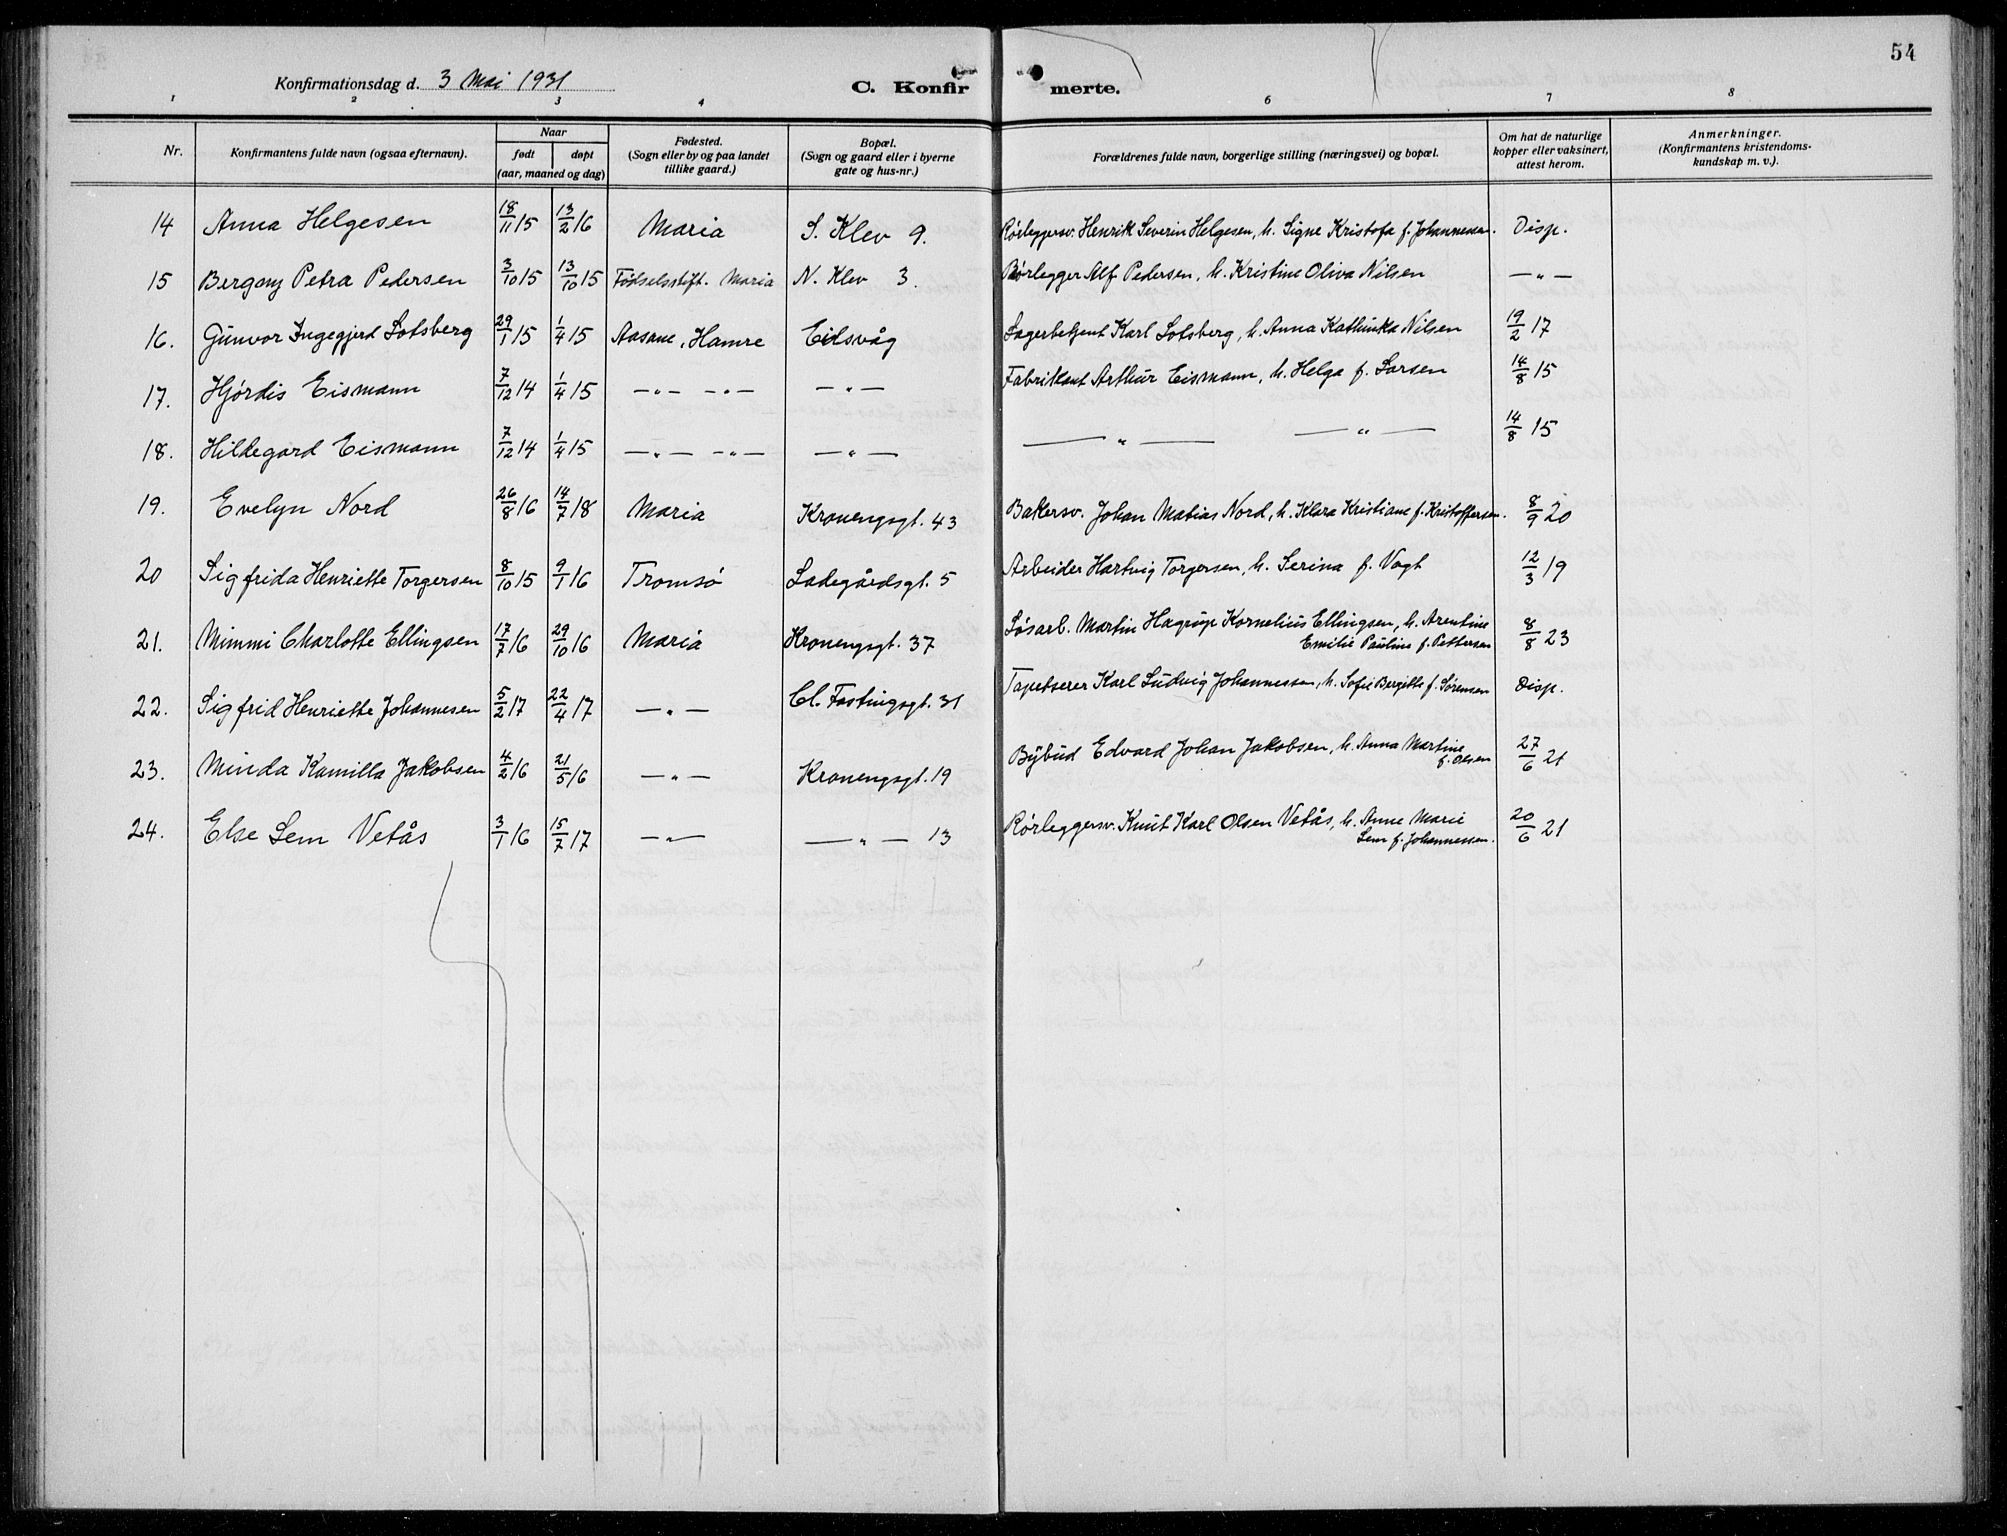 54
Konfirmationsdag d. 3 Mai 1931
C. Konfir merte.
1 2 3 4 6 7 8
Nr.
Konfirmantens fulde navn (ogsaa efternavn).
Naar
født døpt
(aar, maaned og dag)
Fødested.
(Sogn eller by og paa landet
tillike gaard.)
Bopæl.
(Sogn og gaard eller i byerne
gate og hus-nr.)
Forældrenes fulde navn, borgerlige stilling (næringsvei) og bopæl.
Om hat de naturlige
kopper eller vaksinert,
attest herom.
Anmerkninger.
(Konfirmantens kristendoms-
kundskap m. v.).
14 Anna Helgesen 18/11 15 13/2 16 Maria S. Klev 9. Rørleggersv. Henrik Severin Helgesen, h. Signe Kristofa f. Johannessen. Disp.
15 Bergny Petra Pedersen 3/10 15 13/10 15 Fødselsstift. Maria N. Klev 3. Rørlegger Alf Pedersen, h. Kristine Oliva Nilsen —"—
16. Gunvor Ingegjerd Lotsberg 29/1 15 1/4 15 Aasane, Hamre Eidsvåg Lagerbetjent Karl Lotsberg, h. Anna Kathinka Nilsen 19/2 17
17. Hjørdis Eismann 7/12 14 1/4 15 —"— —"— —"— Fabrikant Arthur Eismann, h. Helga f. Larsen 14/8 15
18. Hildegard Eismann 7/12 14 1/4 15 —"— —"— —"— —"— —"— 14/8 15
19. Evelyn Nord 26/8 16 14/7 18 Maria Kronengsgt. 43 Bakersv. Johan Matias Nord, h. Klara Kristiane f. Kristoffersen. 8/9 20
20 Sigfrida Henriette Torgersen 8/10 15 9/1 16 Tromsø Ladegårdsgt. 5 Arbeider Hartvig Torgersen, h. Serina f. Vogt 12/3 19
21. Mimmi Charlotte Ellingsen 17/7 16 29/10 16 Maria Kronengsgt. 37 Løsarb. Martin Hagrup Kornelius Ellingsen, h. Arentine
Emilie Pauline f. Pettersen 8/8 23
22. Sigfrid Henriette Johannesen 5/2 17 22/4 17 —"— Cl. Fastingsgt. 31 Tapetserer Karl Ludvig Johannessen, h. Sofie Bergitte f. Sørensen Disp.
23. Minda Kamilla Jakobsen 4/2 16 21/5 16 —"— Kronengsgt. 19 Bybud Edvard Johan Jakobsen, h. Anna Martine
f. Olsen 27/6 21
24. Else Sem Vetås 3/1 16 15/7 17 —"— —"— 13 Rørleggersv. Knut Karl Olsen Vetås, h. Anne Marie
Sem f. Johannessen. 20/6 21